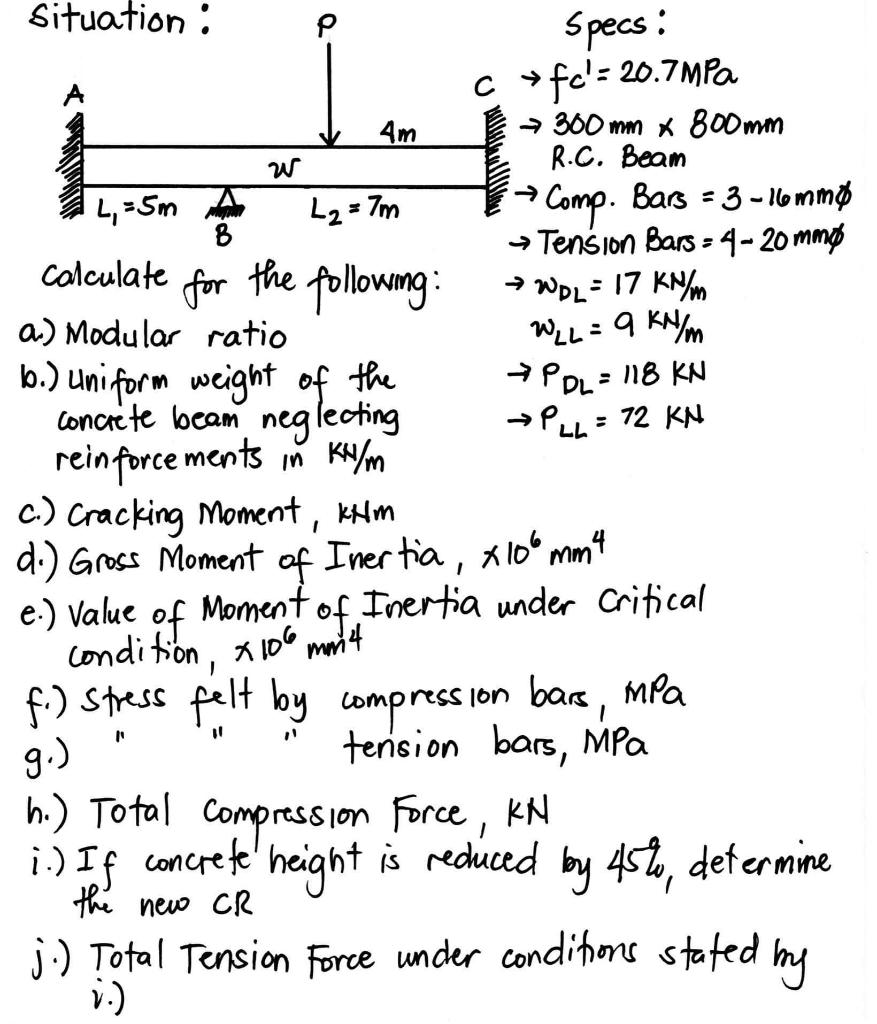 Situation :
P
A
C
4m
w
L₁ = 5m
L₂ = 7m
B
Specs :
→ fc' = 20.7 MPa
→ 300 mm x 800 mm
R.C. Beam
→ Comp. Bars = 3 - 16 mmϕ
→ Tension Bars = 4 - 20 mmϕ
→ W_DL = 17 KN/m
W_LL = 9 KN/m
→ P_DL = 118 KN
→ P_LL = 72 KN
Calculate for the following:
a.) Modular ratio
b.) Uniform weight of the
concrete beam neglecting
reinforcements in KN/m
c.) Cracking Moment, KNm
d.) Gross Moment of Inertia, x10⁶ mm⁴
e.) Value of Moment of Inertia under Critical
condition, x10⁶ mm⁴
f.) Stress felt by compression bars, MPa
g.) " " " tension bars, MPa
h.) Total Compression Force, KN
i.) If concrete' height is reduced by 45%, determine
the new CR
j.) Total Tension Force under conditions stated by
i.)